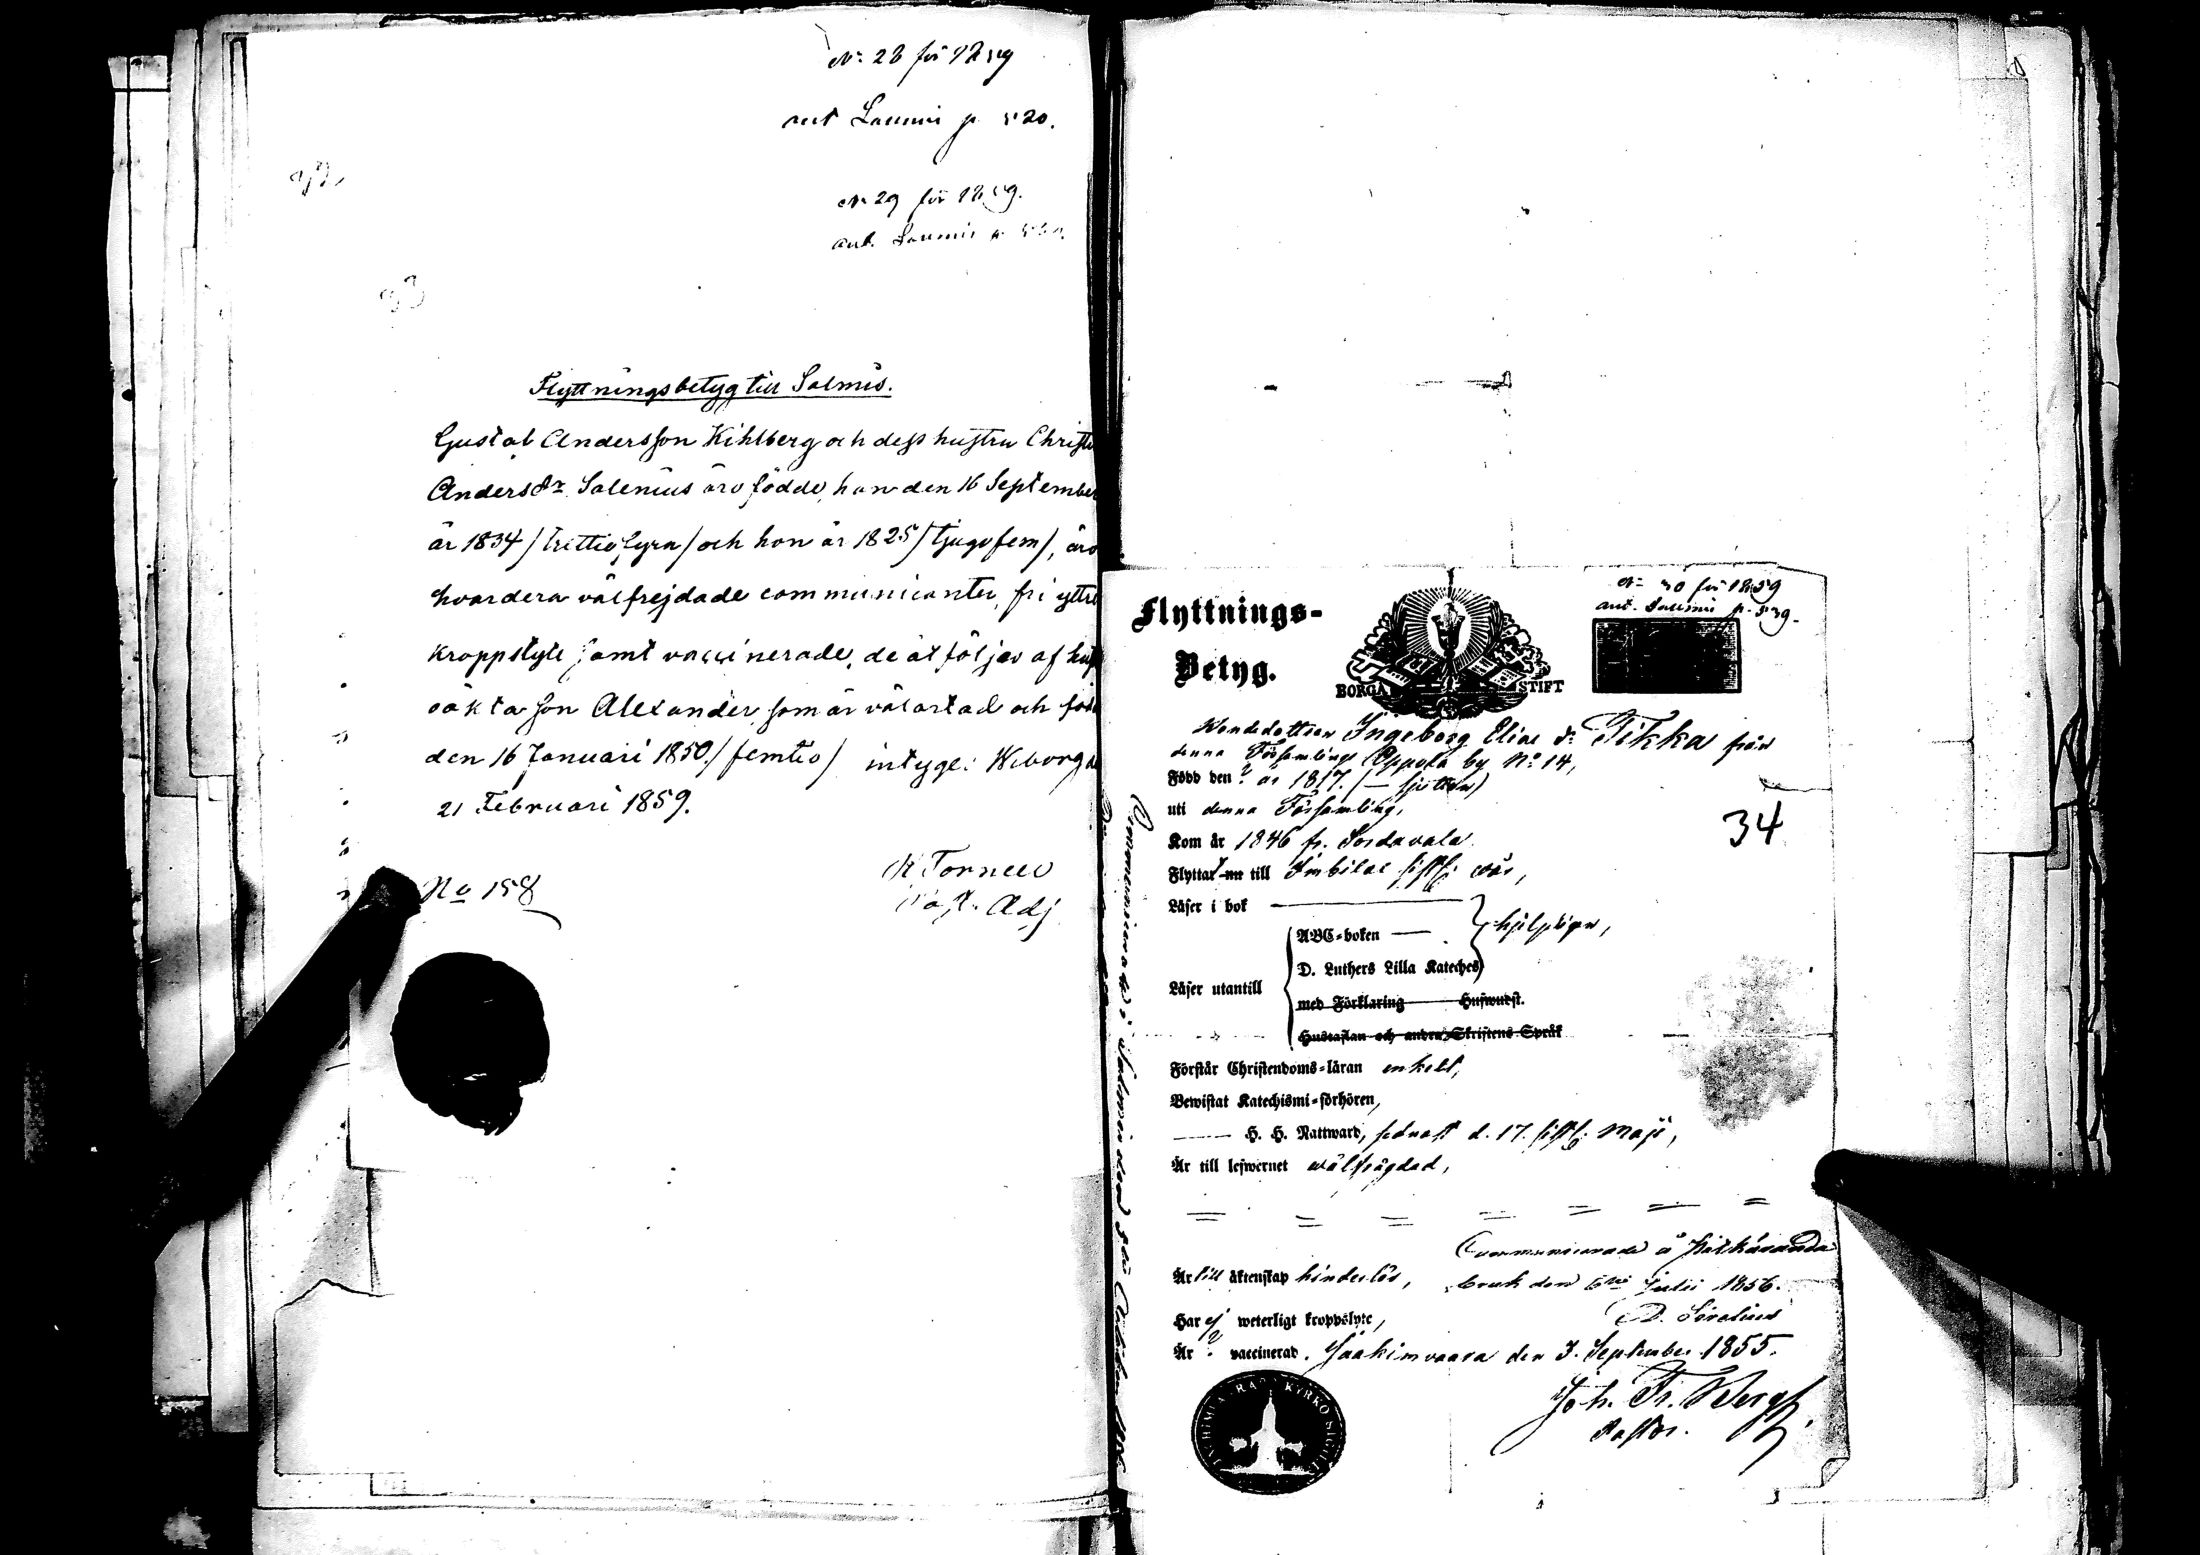 No 28 för 1859
ant Salmis p 520.
No 29 för 1859.
ant. Salmis p.
92
93
Flyttningsbetyg till Salmis.
Gustaf Andersson Kihlberg och dess hustru Christi
Andersdr Salenius äro födde, han den 16 September
år 1834 / trettiofyra / och hon år 1825 / tjugofem /, äro
hvardera välfrejdade communicanter, fri yttre
kroppslyte samt vaccinerade, de åtföljes af hust
oäkta son Alexander, som är välartad och född
den 16 Januari 1850. / femtio / intygar: Wiborg d
21 Februari 1859.
K Torneew
Past. Adj
No 158
Flyttnings-
Betyg.
BORGÅ STIFT
No 30 för 1859
ant. Salmis p. 539.
Bondedottren Ingeborg Elias dr Tikka från
denna Församlings Oppola by No 14,
Född den ? år 1817. (— sjutton)
uti denna Församling,
Kom år 1846 fr. Sordavala
34
Flyttat till Imbilax sistl. vår,
Läser i bok
ABC-boken — hjelpligen,
D. Luthers Lilla Kateches
Läser utantill
med Förklaring Huswudst.
Hustaflan och andra Skriftens Språk
Förstår Christendoms-läran enkelt,
Bewistat Katechismi-förhören,
H. H. Nattward, sednast d. 17. sistl. Maji,
Är till lefwernet wälfrägdad,
Communicerade å Pitkäranda
Är till äktenskap hinderlös, bruk den 6te Julii 1856.
D. Sirelius
Har ej weterligt kroppslyte,
Är ? vaccinerad. Jaakimvaara den 3. September 1855.
Joh. Fr. Bergh,
Pastor.
Communicerade i Salmis den 5te October 1856